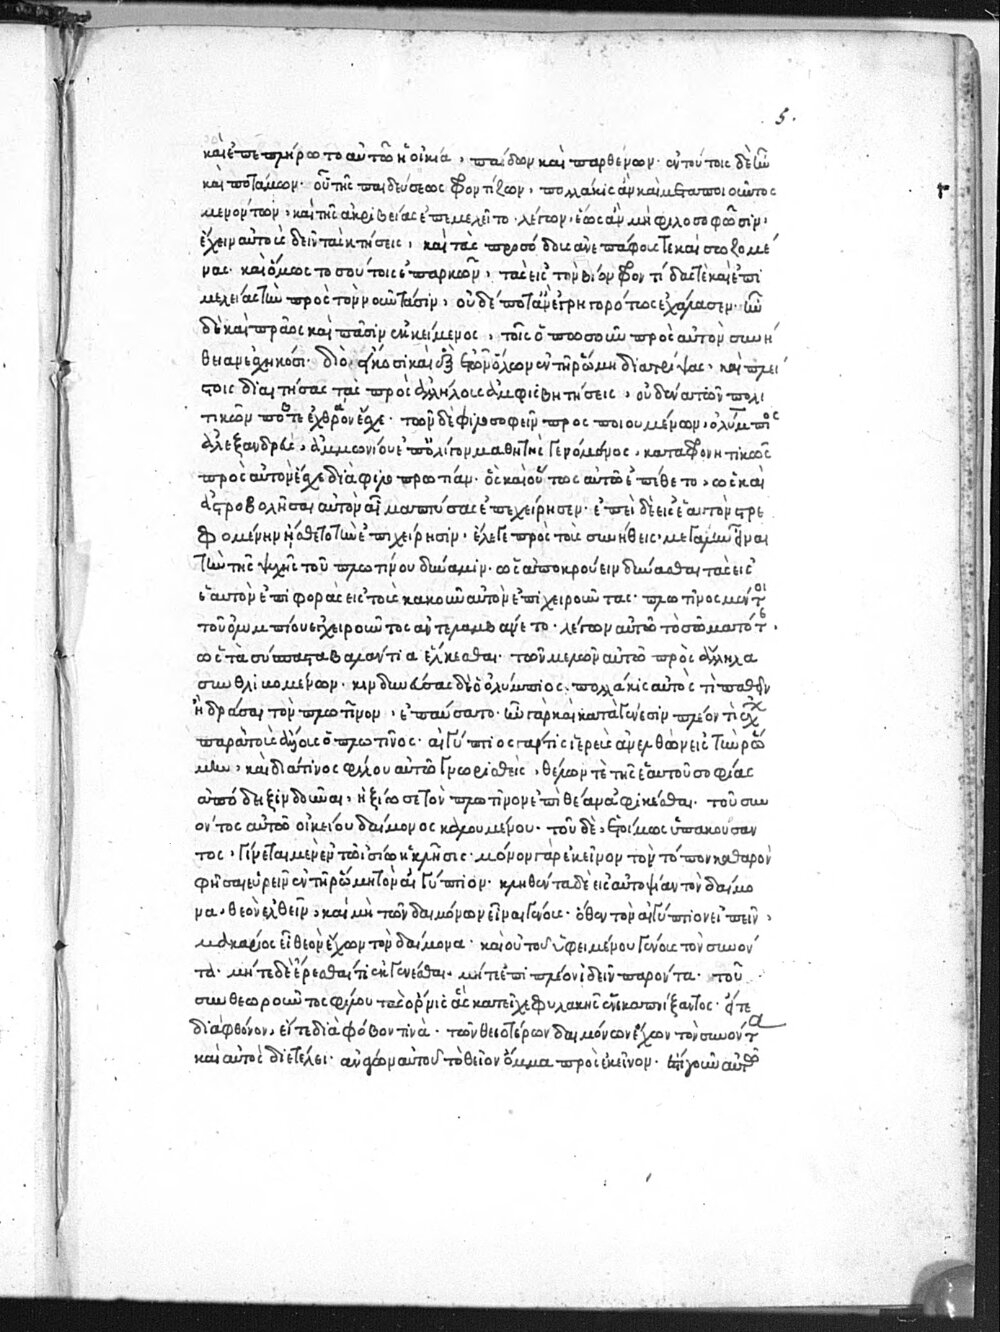 5.
καὶ ἐπεπλήρωτο αὐτῶ ἡ οἰκία, παίδων καὶ παρθένων· ἐν τούτοις δὲ ἦν
καὶ ποτάμων· οὗ τῆς παιδεύσεως φροντίζων, πολλάκις ἂν καὶ μεταποιοῦντος
μενον τῶν, καὶ τῆς ἀκριβείας ἐπεμελεῖτο· λέγων, ἕως ἂν μὴ φιλοσοφῶσιν,
ἔχειν αὐτοὺς δεῖν τὰς κτήσεις, καὶ τὰς προσόδους ἀνεπάφους τε καὶ σωζομέ
νας· καὶ ὅμως τοσούτοις ἐπαρκῶν, τὰς εἰς τὸν βίον φροντίδας τὲ καὶ ἐπι
μελείας τὴν πρὸς τὸν νοῦν τάσιν, οὐδέποτ' ἂν ἐγρηγορότως ἐχάλασεν· ἦν
δὲ καὶ πρᾶος καὶ πᾶσιν ἐκκείμενος, τοῖς ὁπωσοῦν πρὸς αὐτὸν συνή
θειαν ἐσχηκόσι· διὸ εἴκοσι καὶ ἓξ ἐτῶν ὅλων ἐν τῆ ῥώμη διατρίψας, καὶ πλεί
στοις διαιτήσας τὰς πρὸς ἀλλήλους ἀμφισβητήσεις, οὐδένα τῶν πολι
τικῶν ποτε ἐχθρὸν ἔσχε· τῶν δὲ φιλοσοφεῖν προσποιουμένων, ὀλύμπιος
ἀλεξανδρεὺς, ἀμμωνίου ἐπ' ὀλίγον μαθητὴς γενόμενος, καταφρονητικῶς
πρὸς αὐτὸν ἔσχε διὰ φιλοπρωτίαν· ὃς καὶ οὕτως αὐτῶ ἐπέθετο, ὥστε καὶ
ἀστροβολῆσαι αὐτὸν μαγεύσας ἐπεχείρησεν· ἐπεὶ δὲ εἰς ἑαυτὸν στρε
φομένην ἤσθετο τὴν ἐπιχείρησιν, ἔλεγε πρὸς τοὺς συνήθεις· μεγάλην εἶναι
τὴν τῆς ψυχῆς τοῦ πλωτίνου δύναμιν· ὡς ἀποκρούειν δύνασθαι τὰς εἰς
ἑαυτὸν ἐπιφορὰς εἰς τοὺς κακοῦν αὐτὸν ἐπιχειροῦντας· πλωτῖνος μέντοι
τοῦ ὀλυμπίου ἐγχειροῦντος ἀντελαμβάνετο· λέγων αὐτῶ τὸ σῶμα τότε,
ὡς τὰ σύσπαστα βαλάντια ἕλκεσθαι· τῶν μελῶν αὐτῶ πρὸς ἄλληλα
συνθλιβομένων· κινδυνεύσας δὲ ὁ ὀλύμπιος πολλάκις αὐτός τι παθεῖν
ἢ δρᾶσαι τὸν πλωτῖνον, ἐπαύσατο· ἦν γὰρ καὶ κατὰ γένεσιν πλέον τι ἔχων
παρὰ τοὺς ἄλλους ὁ πλωτῖνος· αἰγύπτιος γάρ τις ἱερεὺς ἀνελθὼν εἰς τὴν ῥώ
μην, καὶ διά τινος φίλου αὐτῶ γνωρισθεὶς, θέλων τὲ τῆς ἑαυτοῦ σοφίας
ἀπόδειξιν δοῦναι, ἠξίωσε τὸν πλωτῖνον ἐπὶ θέαν ἀφικέσθαι τοῦ συν
όντος αὐτῶ οἰκείου δαίμονος καλουμένου· τοῦ δὲ, ἑτοίμως ὑπακούσαν
τος, γίνεται μὲν ἐν τῶ ἰσίω ἡ κλῆσις· μόνον γὰρ ἐκεῖνον τὸν τόπον καθαρὸν
φῆσαι εὑρεῖν ἐν τῆ ῥώμη τὸν αἰγύπτιον· κληθέντα δὲ εἰς αὐτοψίαν τὸν δαίμο
να, θεὸν ἐλθεῖν, καὶ μὴ τῶν δαιμόνων εἶναι γένους· ὅθεν τὸν αἰγύπτιον εἰπεῖν,
μακάριος εἶ θεὸν ἔχων τὸν δαίμονα· καὶ οὐ τοῦ ὑφειμένου γένους τὸν συνόν
τα· μήτε δὲ ἔρεσθαί τι ἐκγενέσθαι, μήτ' ἐπὶ πλέον ἰδεῖν παρόντα· τοῦ
συνθεωροῦντος φίλου τὰς ὄρνεις ἃς κατεῖχε φυλακῆς ἕνεκα πνίξαντος· εἴτε
διὰ φθόνον, εἴτε διὰ φόβον τινὰ· τῶν θειοτέρων δαιμόνων ἔχων τὸν συνόντα
καὶ αὐτὸς διετέλει· ἀνάγων αὐτοῦ τὸ θεῖον ὄμμα πρὸς ἐκεῖνον· ἔστι γοῦν αὐτῶ